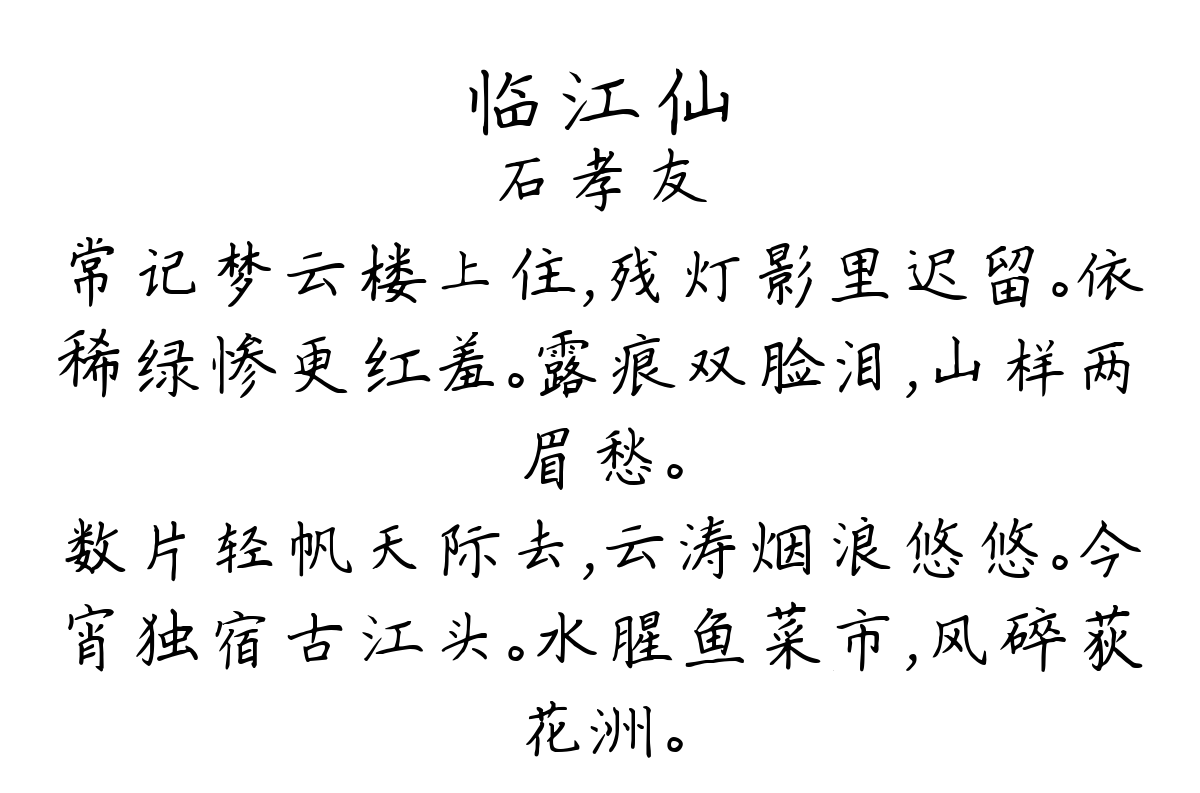 临江仙
石孝友
常记梦云楼上住,残灯影里迟留。依
稀绿惨更红羞。露痕双脸泪,山样两
眉愁。
数片轻帆天际去,云涛烟浪悠悠。今
宵独宿古江头。水腥鱼菜市,风碎荻
花洲。